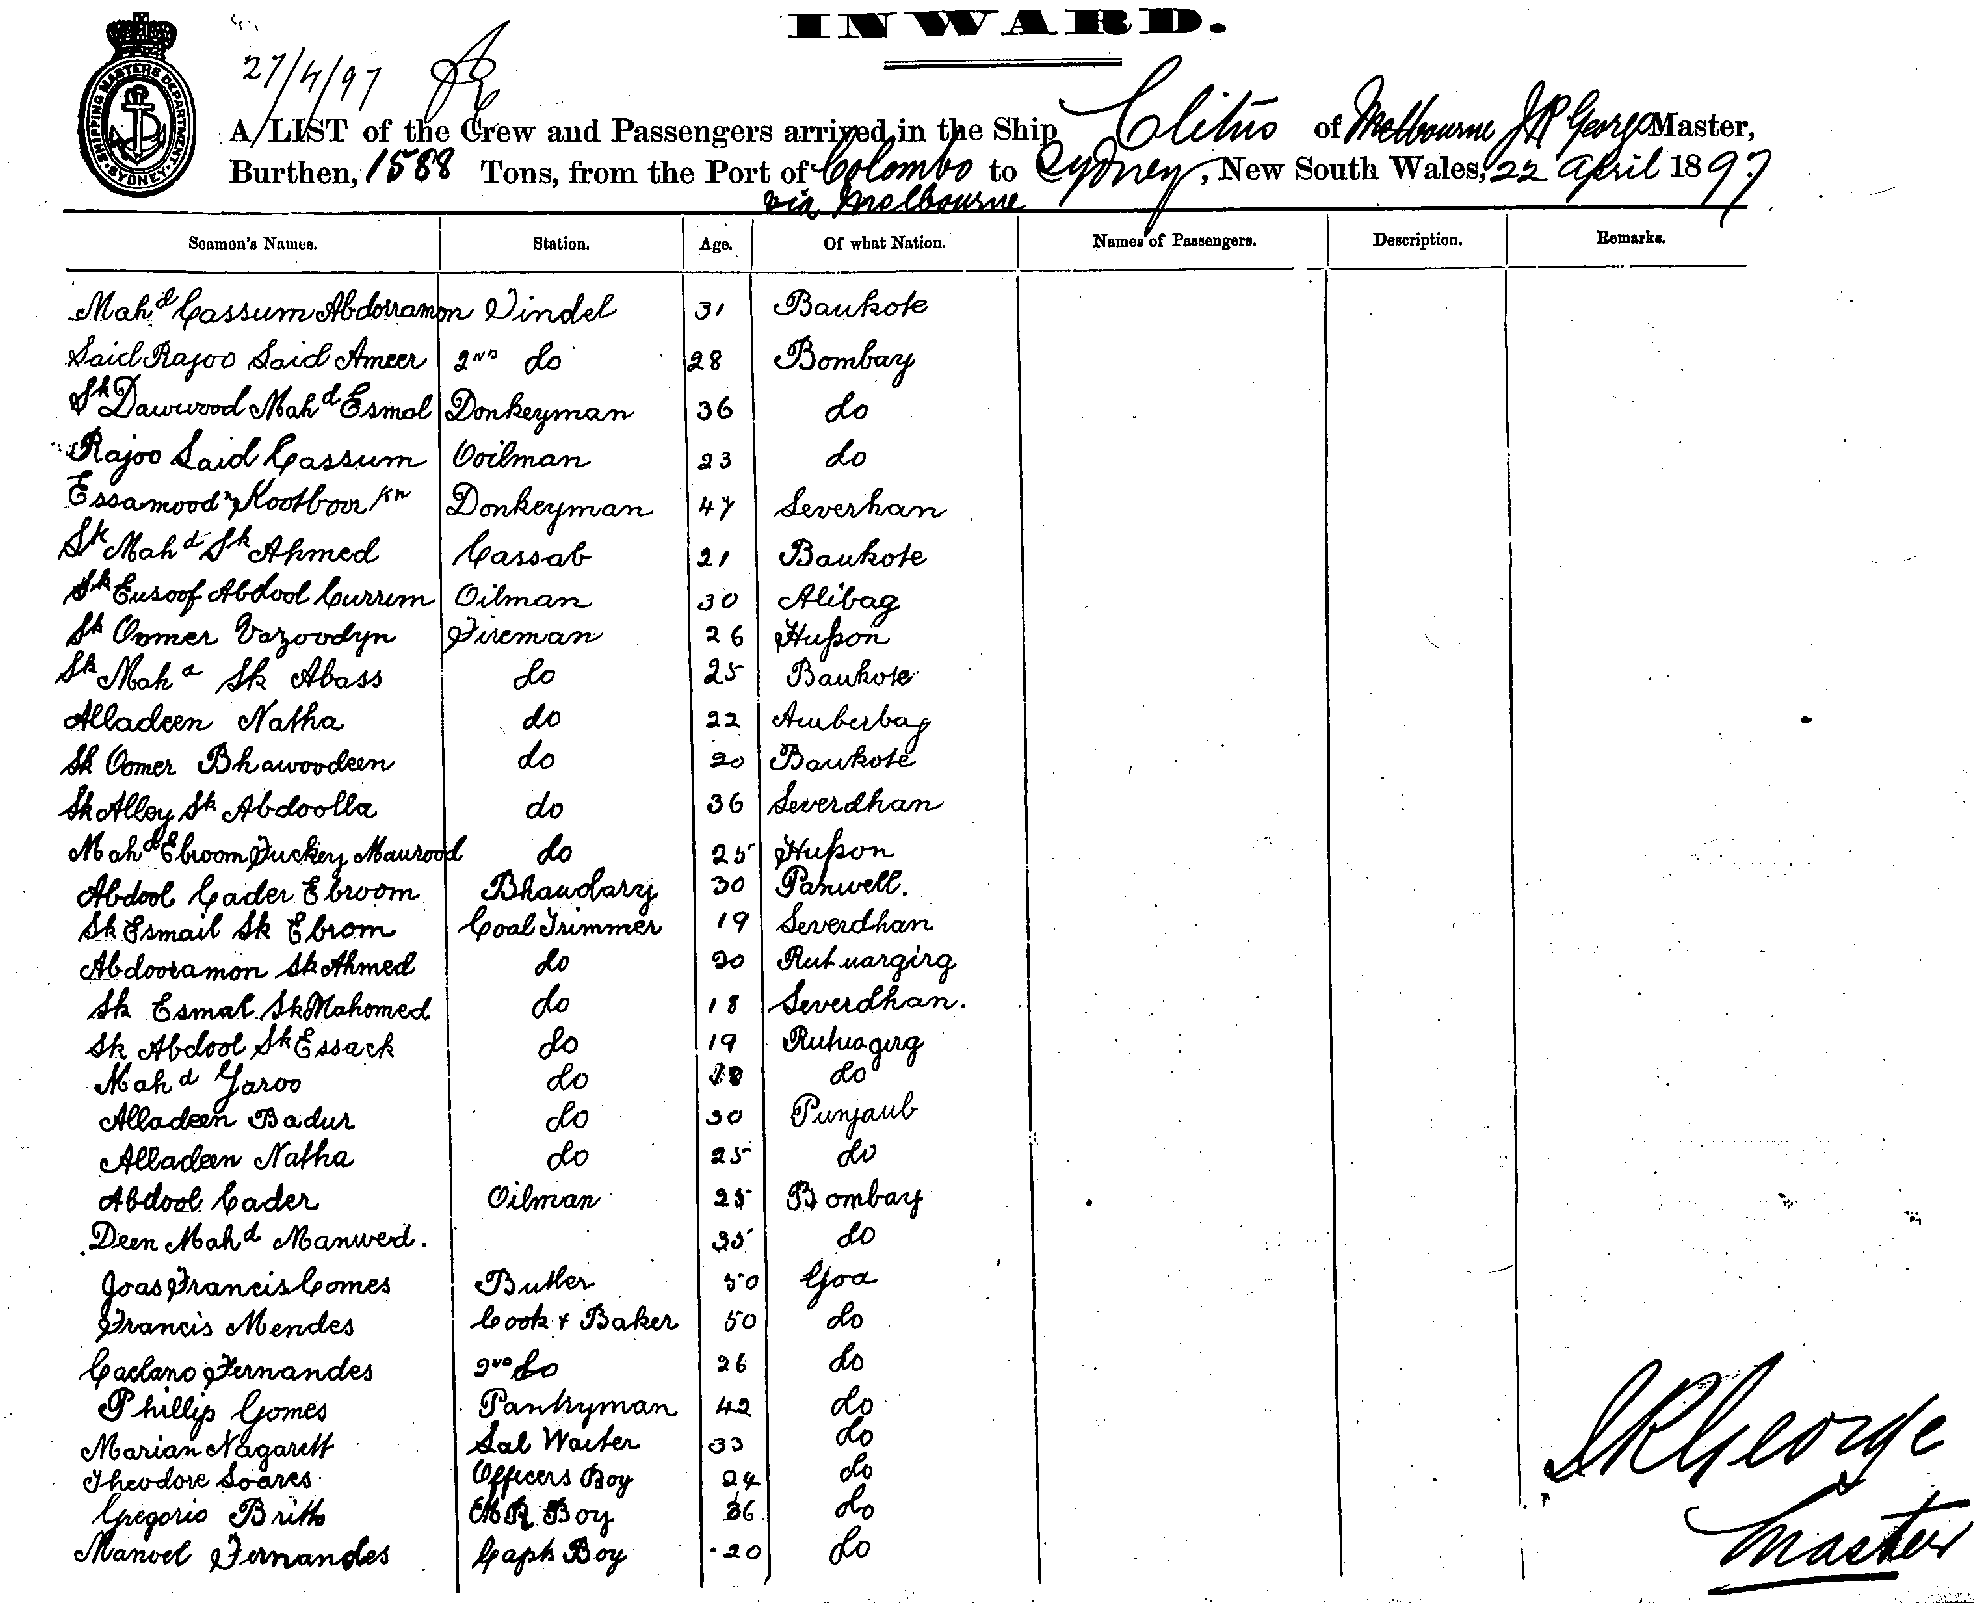 INWARD.
27/4/97
SHIPPING MASTERS DEPARTMENT SYDNEY
A LIST of the Crew and Passengers arrived in the Ship Clitus of Melbourne J R George Master,
Burthen, 1588 Tons, from the Port of Colombo to Sydney, New South Wales, 22 April 1897
via Melbourne
Seamen's Names. Station. Age. Of what Nation. Names of Passengers. Description. Remarks.
Mahd Cassum Abdorramon Tindel 31 Baukote
Said Rajoo Said Ameer 2nd do 28 Bombay
Sk Dawwood Mahd Esmal Donkeyman 36 do
Rajoo Said Cassum Ooilman 23 do
Essamoodn Kootboor Donkeyman 47 Severhan
Sk Mahd Sk Ahmed Cassab 21 Baukote
Sk Eusoof Abdool Currim Oilman 30 Alibag
Sk Oomer Vazoodyn Fireman 26 Husson
Sk Mahd Sk Abass do 25 Baukote
Alladeen Natha do 22 Amberbag
Sk Oomer Bhawoodeen do 20 Baukote
Sk Alley Sk Abdoolla do 36 Severdhan
Mahd Ebroom Fuckey Maurood do 25 Husson
Abdool Cader Ebroom Bhaudary 30 Panwell.
Sk Esmail Sk Ebrom Coal Trimmer 19 Severdhan
Abdooramon Sk Ahmed do 20 Rutuargirg
Sk Esmal Sk Mahomed do 18 Severdhan.
Sk Abdool Sk Essack do 19 Rutuagirg
Mahd Yaroo do 18 do
Alladeen Badur do 30 Punjaub
Alladeen Natha do 25 do
Abdool Cader Oilman 25 Bombay
Deen Mahd Manwerd. 35 do
Joas Francis Gomes Butler 50 Goa
Francis Mendes Cook & Baker 50 do
Caetano Fernandes 2nd do 26 do
Phillip Gomes Pantryman 42 do
Marian Nagarett Sal Waiter 33 do
Theodore Soares Officers Boy 24 do
Gregorio Britto M R Boy 36 do
Manoel Fernandes Capts Boy 20 do
J R George
Master